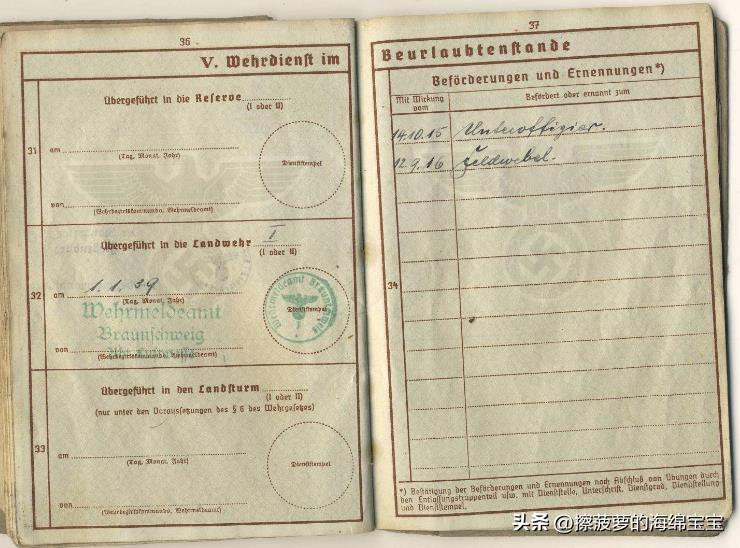 36
V. Wehrdienst im
31
Übergeführt in die Reserve
(I oder II)
am
(Tag, Monat, Jahr)
Dienststempel
von
(Wehrbezirkskommando, Wehrmeldeamt)
32
Übergeführt in die Landwehr I
(I oder II)
am 1.1.39
(Tag, Monat, Jahr)
Wehrmeldeamt
Braunschweig
von
(Wehrbezirkskommando, Wehrmeldeamt)
Wehrmeldeamt Braunschweig
Dienststempel
33
Übergeführt in den Landsturm
(I oder II)
(nur unter den Voraussetzungen des § 6 des Wehrgesetzes)
am
(Tag, Monat, Jahr)
Dienststempel
von
(Wehrbezirkskommando, Wehrmeldeamt)
37
Beurlaubtenstande
Beförderungen und Ernennungen*)
Mit Wirkung vom
Befördert oder ernannt zum
14.10.15 Unteroffizier.
12.9.16 Feldwebel.
34
*) Bestätigung der Beförderungen und Ernennungen nach Abschluß von Übungen durch
den Entlassungstruppenteil usw. mit Dienststelle, Unterschrift, Dienstgrad, Dienststellung
und Dienststempel.
头条 @擦菠萝的海绵宝宝